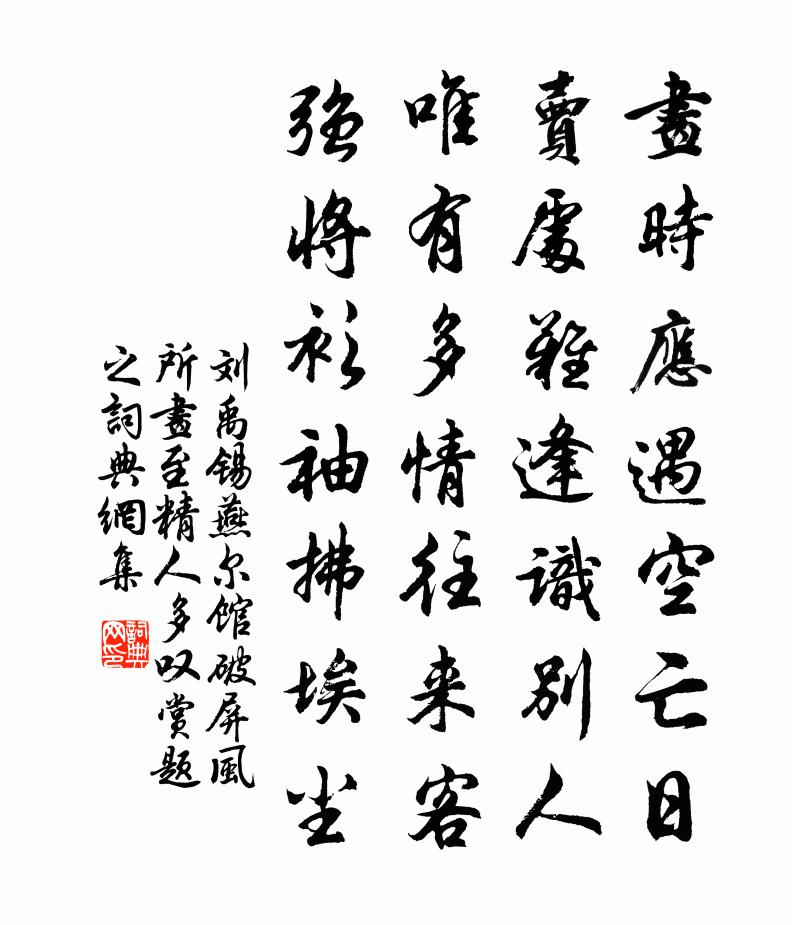 畫時應遇空亡日
賣處難逢識別人
唯有多情往来客
強將衫袖拂埃尘
刘禹锡燕尔馆破屏風
所畫至精人多叹赏题
之詞典網集
詞典網印